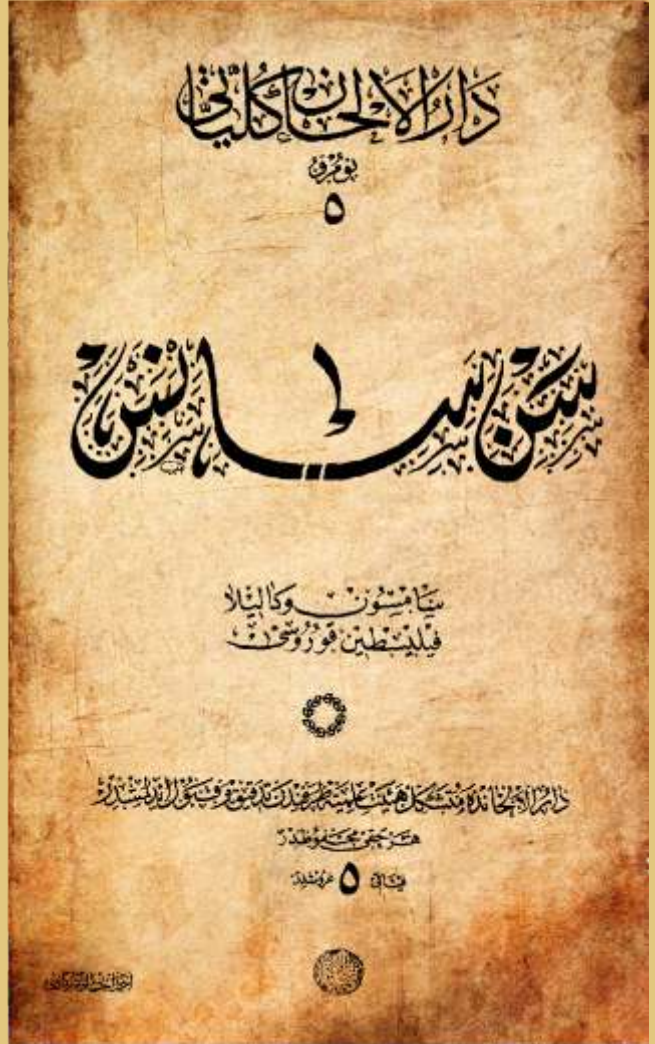 دَارُ الْاَلْحَان كُلِّيَّاتِى
نومرو
٥
سَن سَانس
سامسون و داليلا
فيليسطين قوروسى
دار الالحانده متشكل هيئت علميه طرفندن تدقيق و قبول ايدلمشدر
هر حقى محفوظدر
فيأتى ٥ غروشدر